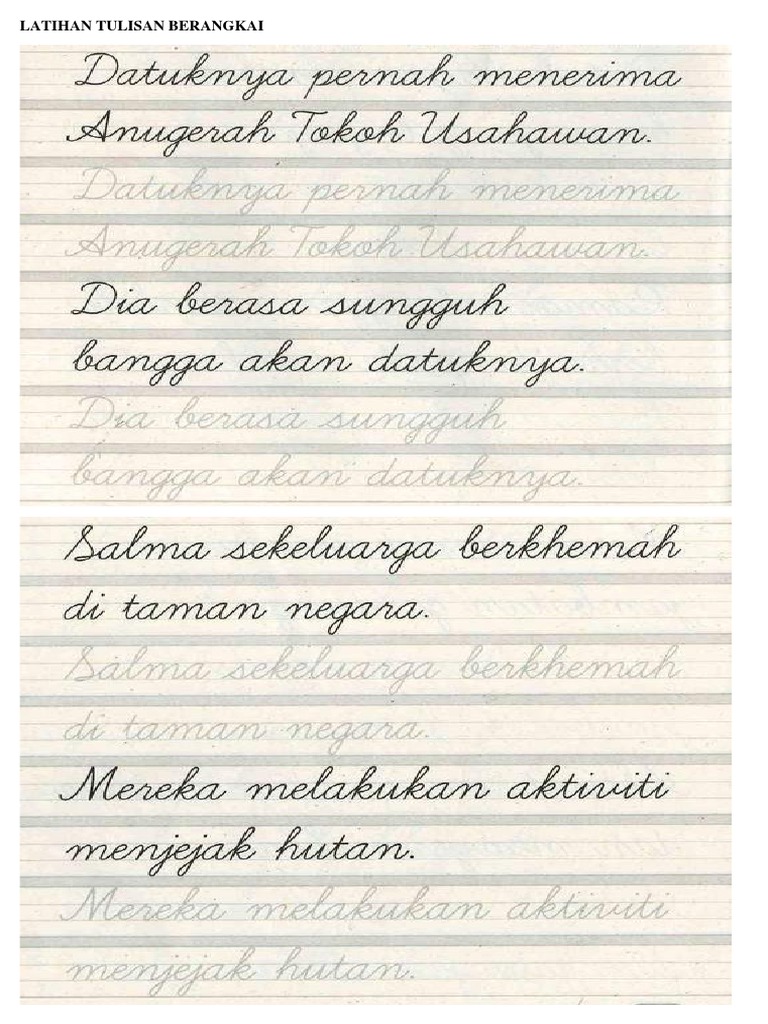 LATIHAN TULISAN BERANGKAI
Datuknya pernah menerima
Anugerah Tokoh Usahawan.
Datuknya pernah menerima
Anugerah Tokoh Usahawan.
Dia berasa sungguh
bangga akan datuknya.
Dia berasa sungguh
bangga akan datuknya.
Salma sekeluarga berkhemah
di taman negara.
Salma sekeluarga berkhemah
di taman negara.
Mereka melakukan aktiviti
menjejak hutan.
Mereka melakukan aktiviti
menjejak hutan.